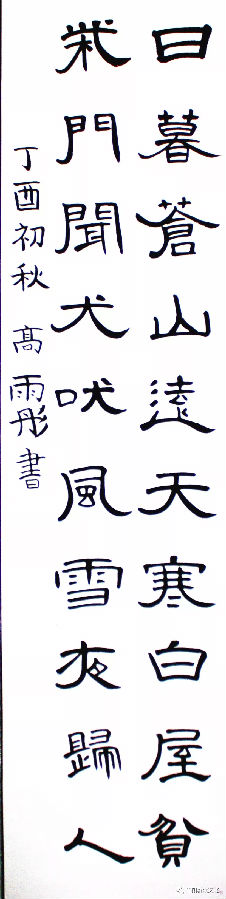 日暮蒼山遠天寒白屋貧
柴門聞犬吠風雪夜歸人
丁酉初秋 髙雨彤書